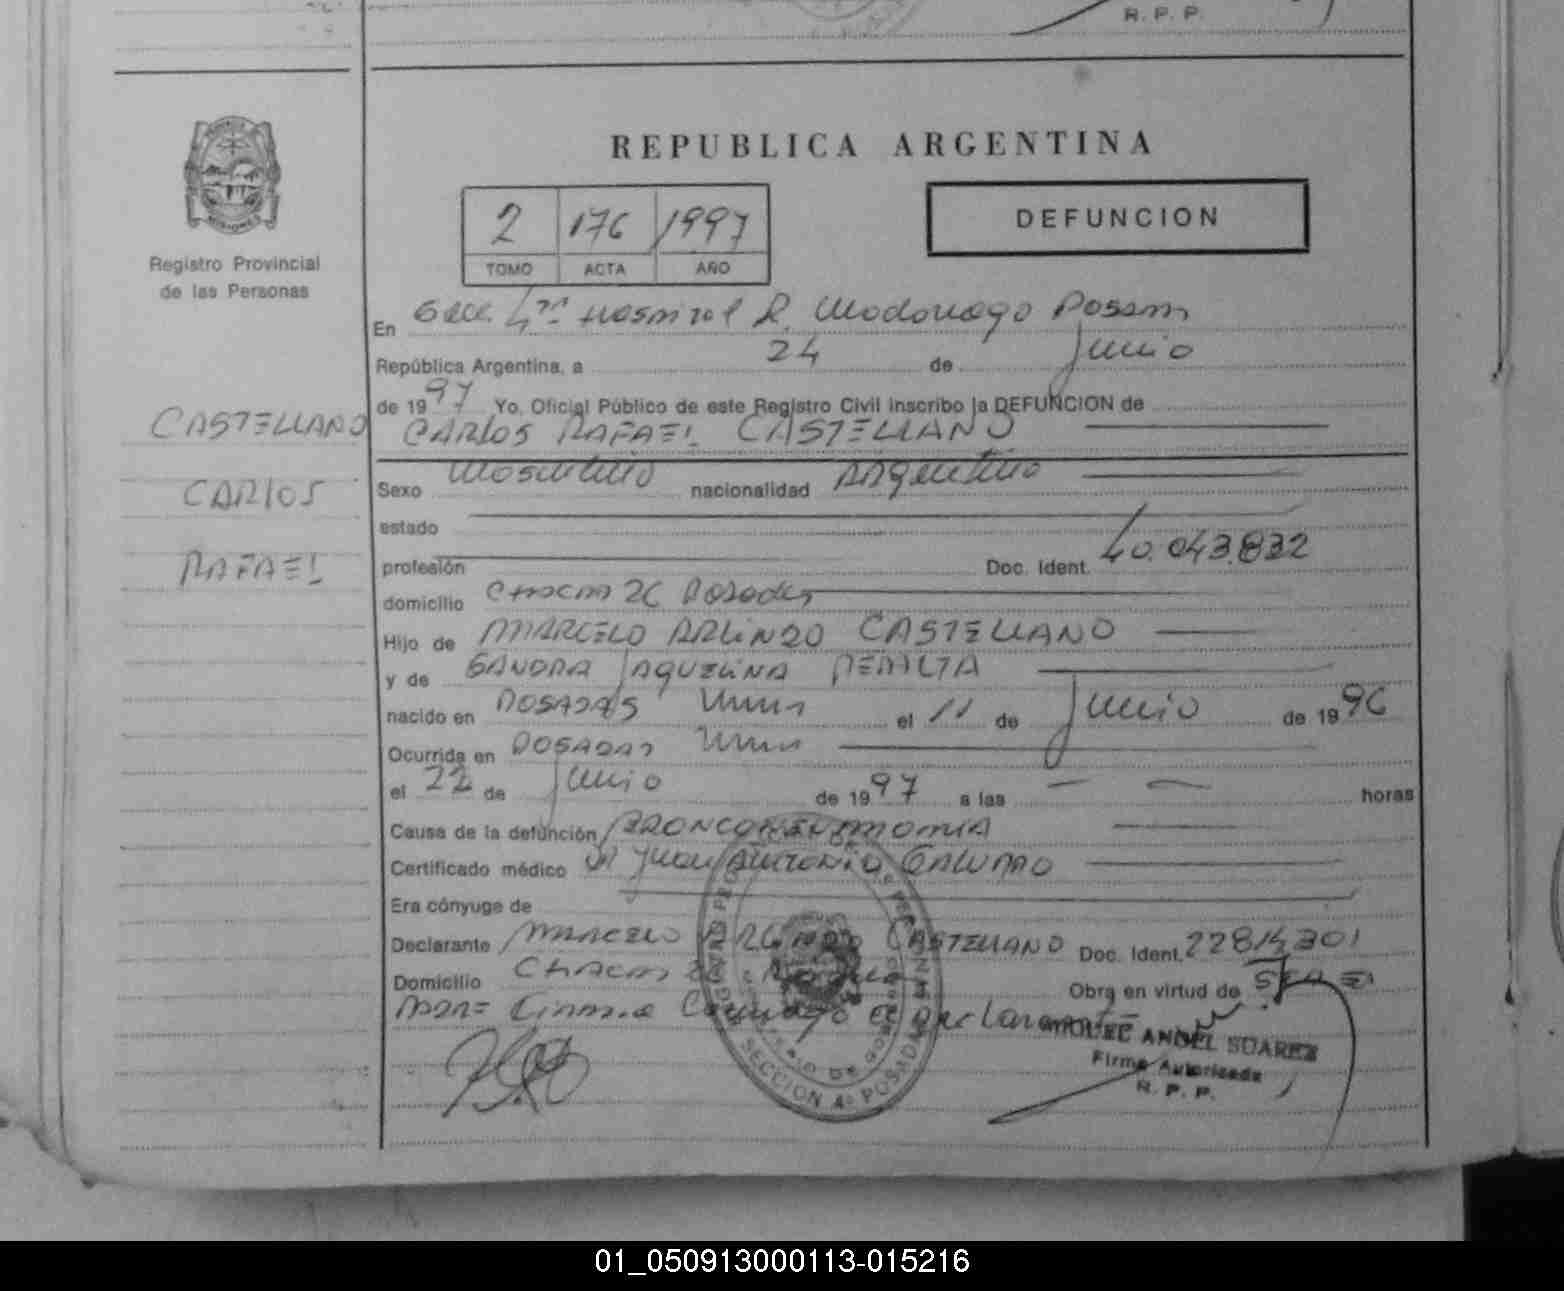 R. P. P.
REPUBLICA ARGENTINA
2 176 1997
TOMO ACTA AÑO
DEFUNCION
Registro Provincial
de las Personas
En Secc. 4ta Hospital R. Madariaga Posadas
República Argentina, a 24 de Junio
de 1997 Yo, Oficial Público de este Registro Civil inscribo la DEFUNCION de
CARLOS RAFAEL CASTELLANO
CASTELLANO
CARLOS
RAFAEL
Sexo Masculino nacionalidad Argentino
estado
profesión Doc. Ident. 40.043.832
domicilio Chacra 26 Posadas
Hijo de MARCELO ARLINDO CASTELLANO
y de SANDRA JAQUELINA PERALTA
nacido en POSADAS Mnes el 11 de Junio de 1996
Ocurrida en POSADAS Mnes
el 22 de Junio de 1997 a las — — horas
Causa de la defunción BRONCONEUMONIA
Certificado médico Dr Juan ANTONIO
Era cónyuge de
Declarante MARCELO ARLINDO CASTELLANO Doc. Ident. 22814301
Domicilio Chacra
Obra en virtud de
el declarante
MIGUEL ANGEL SUAREZ
Firma Autorizada
R. P. P.
SECCION 4º POSADAS
01_050913000113-015216